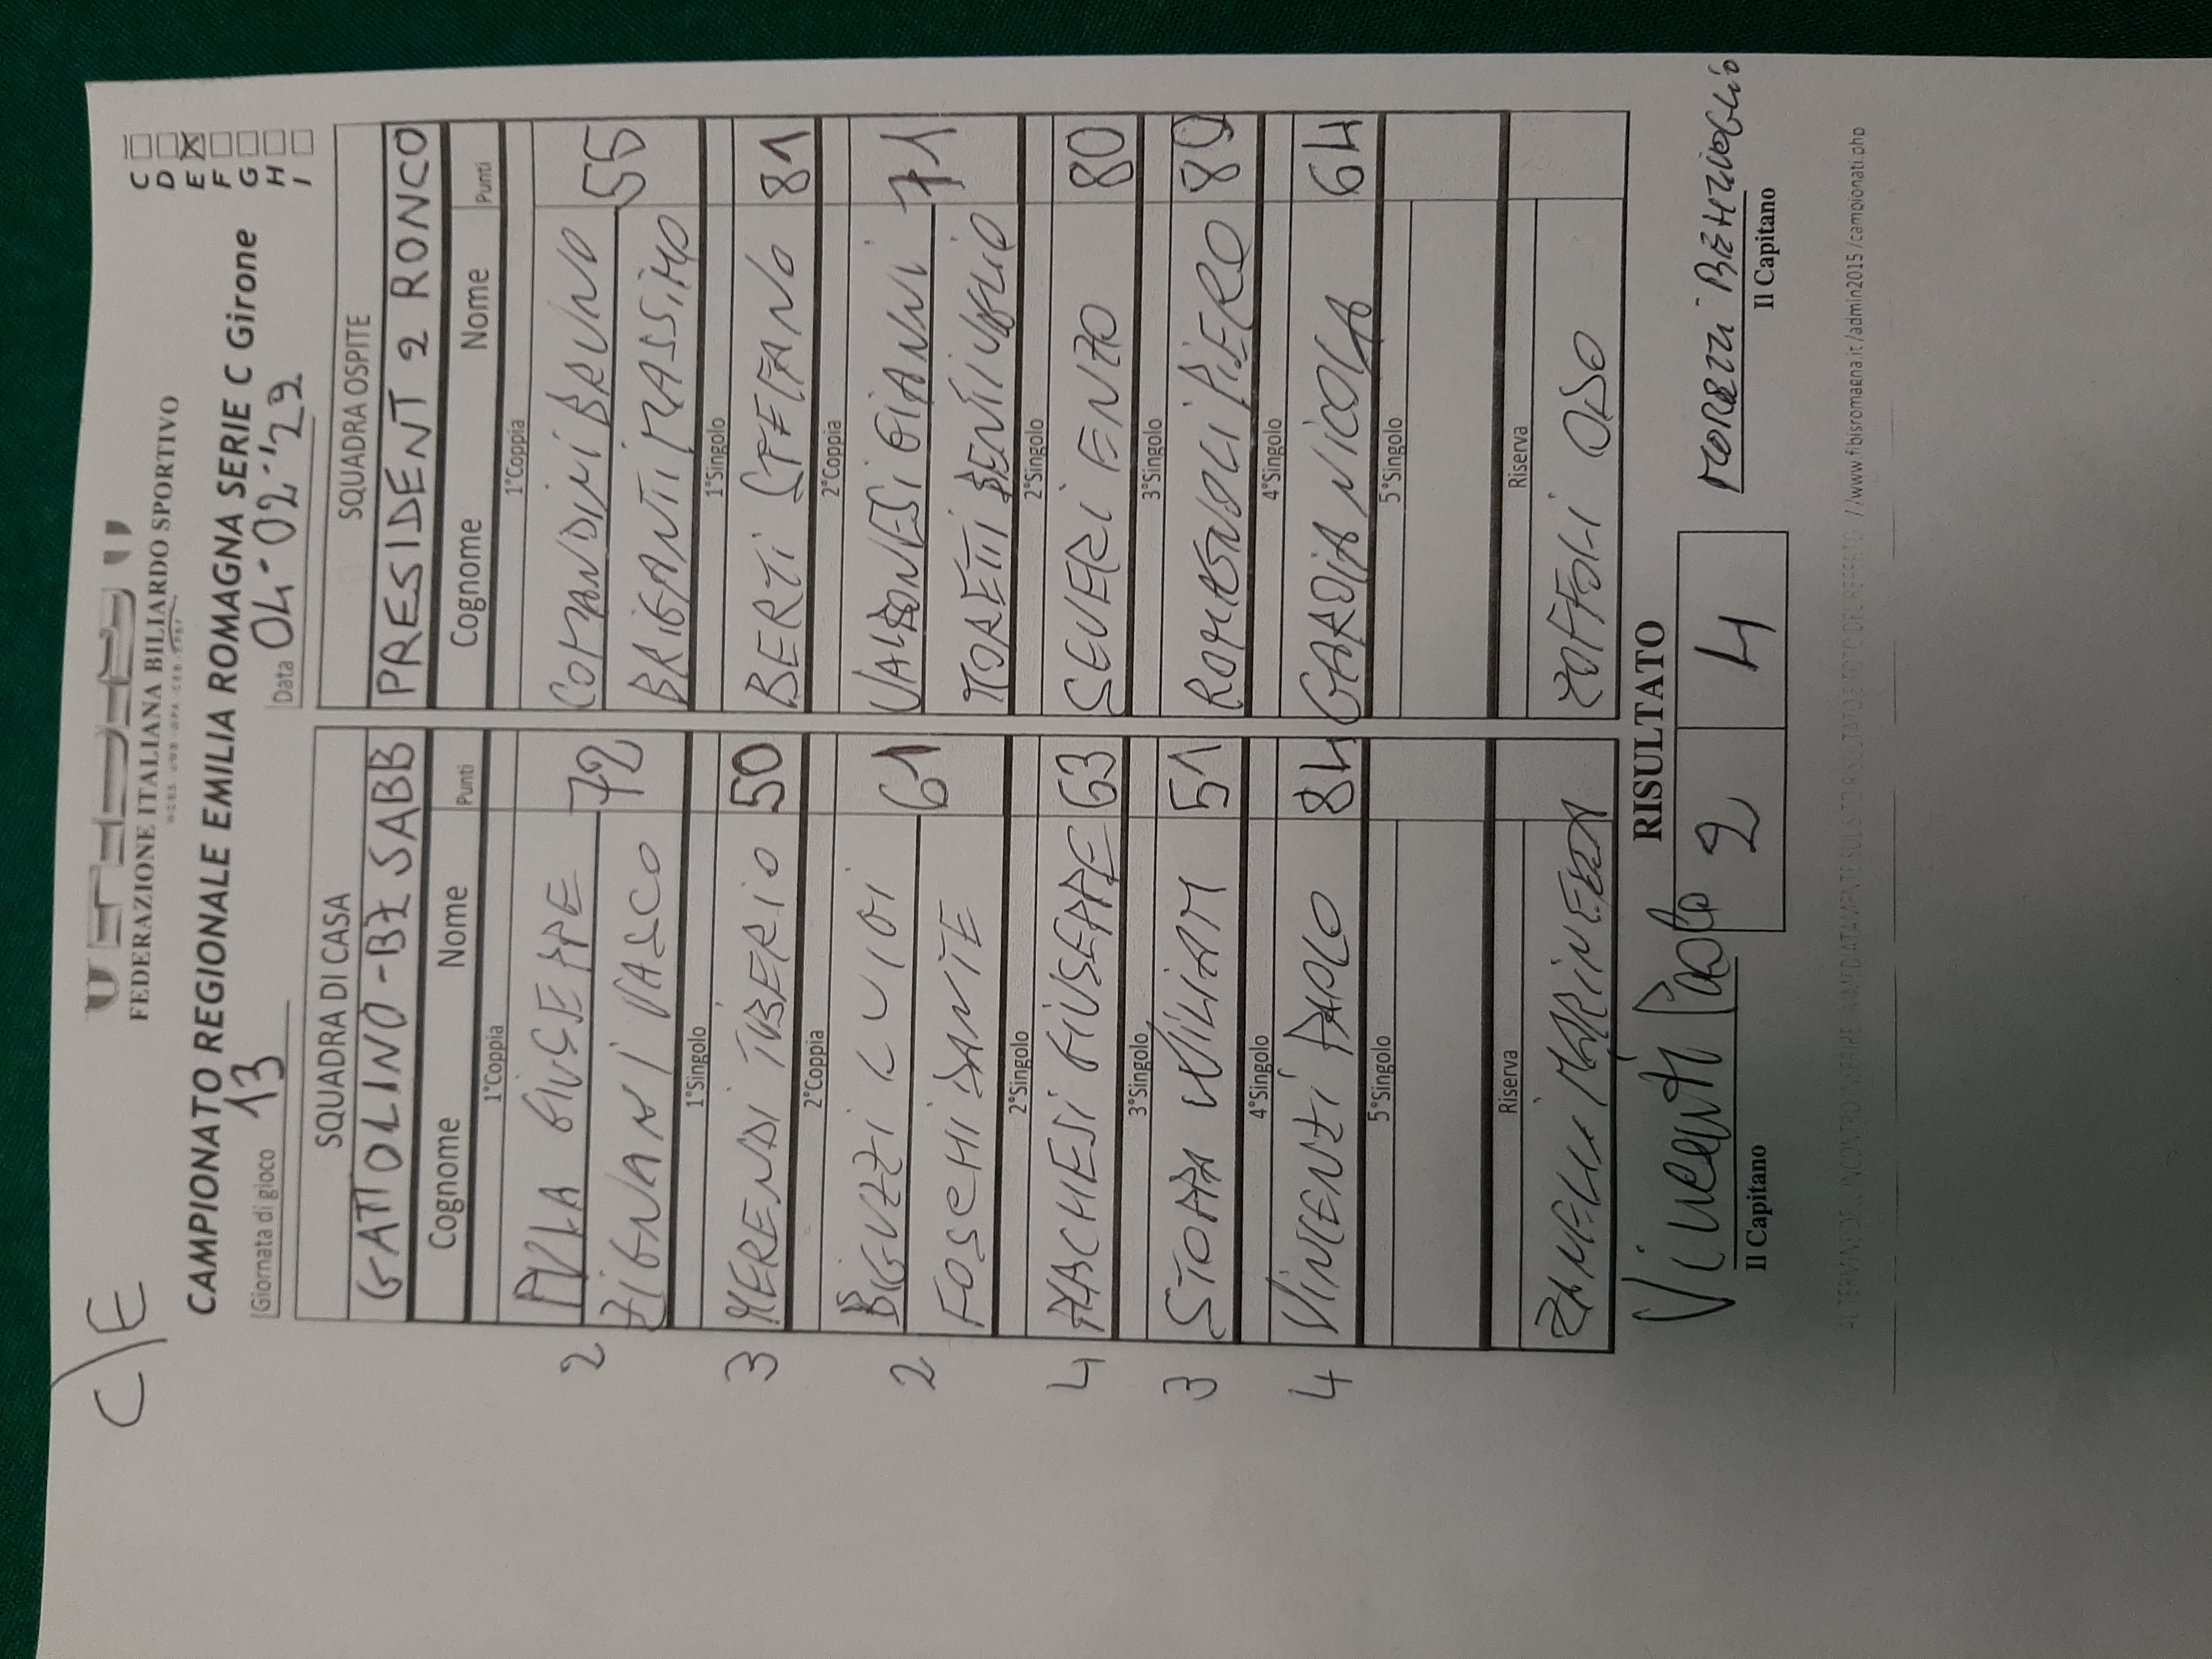 C/E
FEDERAZIONE ITALIANA BILIARDO SPORTIVO
CAMPIONATO REGIONALE EMILIA ROMAGNA SERIE C Girone
C
D
E X
F
G
H
I
Giornata di gioco 13
Data 04-02-'29
SQUADRA DI CASA
GATTOLINO-BZ SABB
Cognome Nome Punti
1°Coppia
PULA GIUSEPPE
2 72
ZIGNANI VASCO
1°Singolo
3 MERENDI TIBERIO 50
2°Coppia
BIGUZZI LUIGI
2 61
FOSCHI DANTE
2°Singolo
4 MACHESI GIUSEPPE 63
3°Singolo
3 STOPPA WILIAM 51
4°Singolo
4 VINCENZI PAOLO 84
5°Singolo
Riserva
ZANELLI
SQUADRA OSPITE
PRESIDENT 2 RONCO
Cognome Nome Punti
1°Coppia
COMANDINI BRUNO
55
BRIGANTI MASSIMO
1°Singolo
BERTI STEFANO 81
2°Coppia
VALBONESI GIANNI
71
BENTIVOGLIO
2°Singolo
SEVERI ENZO 80
3°Singolo
ROMAGNOLI PIERO 80
4°Singolo
GARDIA NICOLA 64
5°Singolo
Riserva
ZOFFOLI
RISULTATO
2 4
Vincenzi Paolo
Il Capitano
BENTIVOGLIO
Il Capitano
//www.fibisromagna.it/admin2015/campionati.php